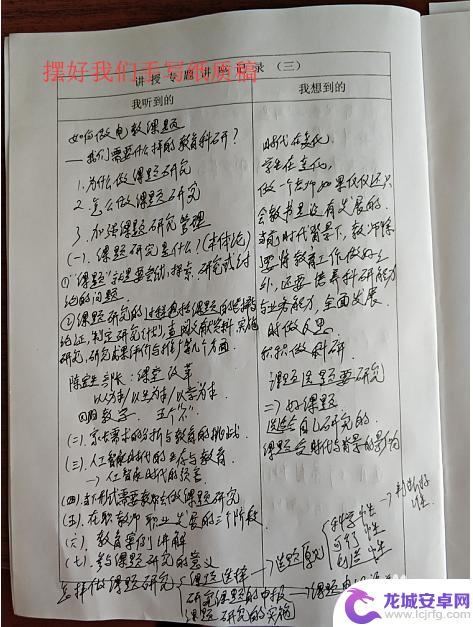 摆好我们手写纸质稿
讲授专题讲座记录（三）
我听到的
我想到的
如何做电教课题
——我们需要什么样的教育科研？
1.为什么做课题研究
2.怎么做课题研究
3.加强课题研究管理
(一)、课题研究是什么？(本体论)
①“课题”就是要尝试、探索、研究或讨
论的问题.
②课题研究的过程包括课题的选择与
论证,制定研究计划,查阅文献资料,实施
研究,研究成果评价与推广等几个方面.
陈宝生部长：课堂改革
以为本/以生为本/以学为本.
回归教学. 五个“不”.
的分析与教育的挑战.
(三).人工智能时代的生存与教育
→人工智能时代的
(四).新形式需要教师去做课题研究
(五).在职教师职业发展的三个阶段
(六).教育案例讲解
(七).参与课题研究的意义
怎样做课题研究
课题选择
研究课题的申报
课题研究的实施
选题原则
科学性
可行性
创造性
时代在变化
学生在变化,
做一个老师如果仅仅还只
会教书是没有发展的.
当前时代背景下,教师除
要将教育工作做好之
外,还要培养科研能力
与业务能力,全面发展.
时做反思
积极做科研
课题选题要研究
二)好课题
选适合自己研究的.
课题受时代与背景的影响
龙城安卓网
www.lcjrfg.com